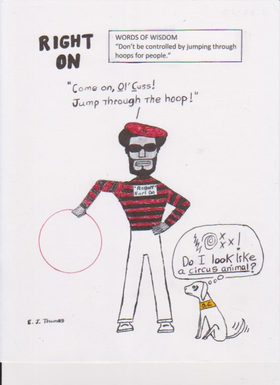 RIGHT
ON
WORDS OF WISDOM
"Don't be controlled by jumping through
hoops for people."
"Come on, Ol' Cuss!
Jump Through The hoop!"
"RIGHT"
! Do I look like
a circus animal?
O.C.
E. J. Thomas